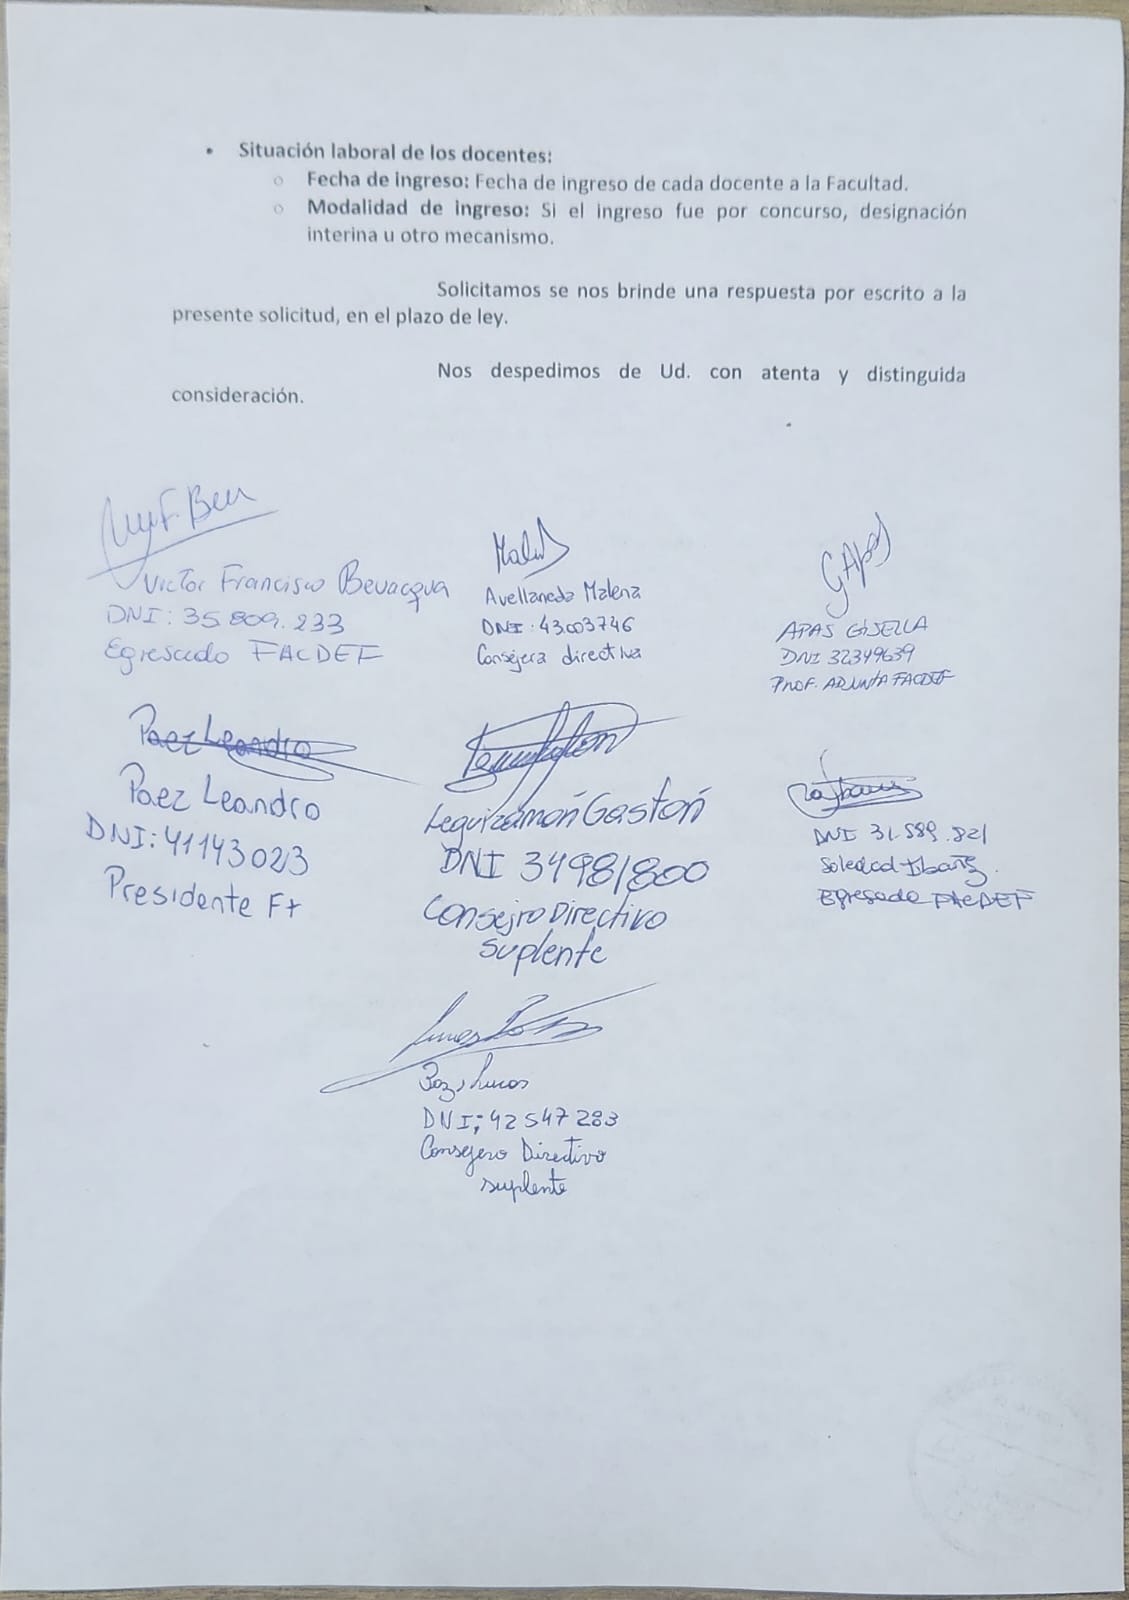 • Situación laboral de los docentes:
○ Fecha de ingreso: Fecha de ingreso de cada docente a la Facultad.
○ Modalidad de ingreso: Si el ingreso fue por concurso, designación
interina u otro mecanismo.
Solicitamos se nos brinde una respuesta por escrito a la
presente solicitud, en el plazo de ley.
Nos despedimos de Ud. con atenta y distinguida
consideración.
Victor Francisco Bevacqua
DNI: 35.809.233
Egresado FACDEF
Avellaneda Malena
DNI: 43003746
Consejera directiva
APAS GISELLA
DNI 32349639
PROF. ADJUNTA FACDEF
Paez Leandro
Paez Leandro
DNI: 41143023
Presidente F+
Leguizamón Gastón
DNI 34981800
Consejro Directivo
suplente
DNI 31.589.821
Soledad Ibañez
Egresada FACDEF
Lucas
DNI; 42547283
Consejero Directivo
suplente